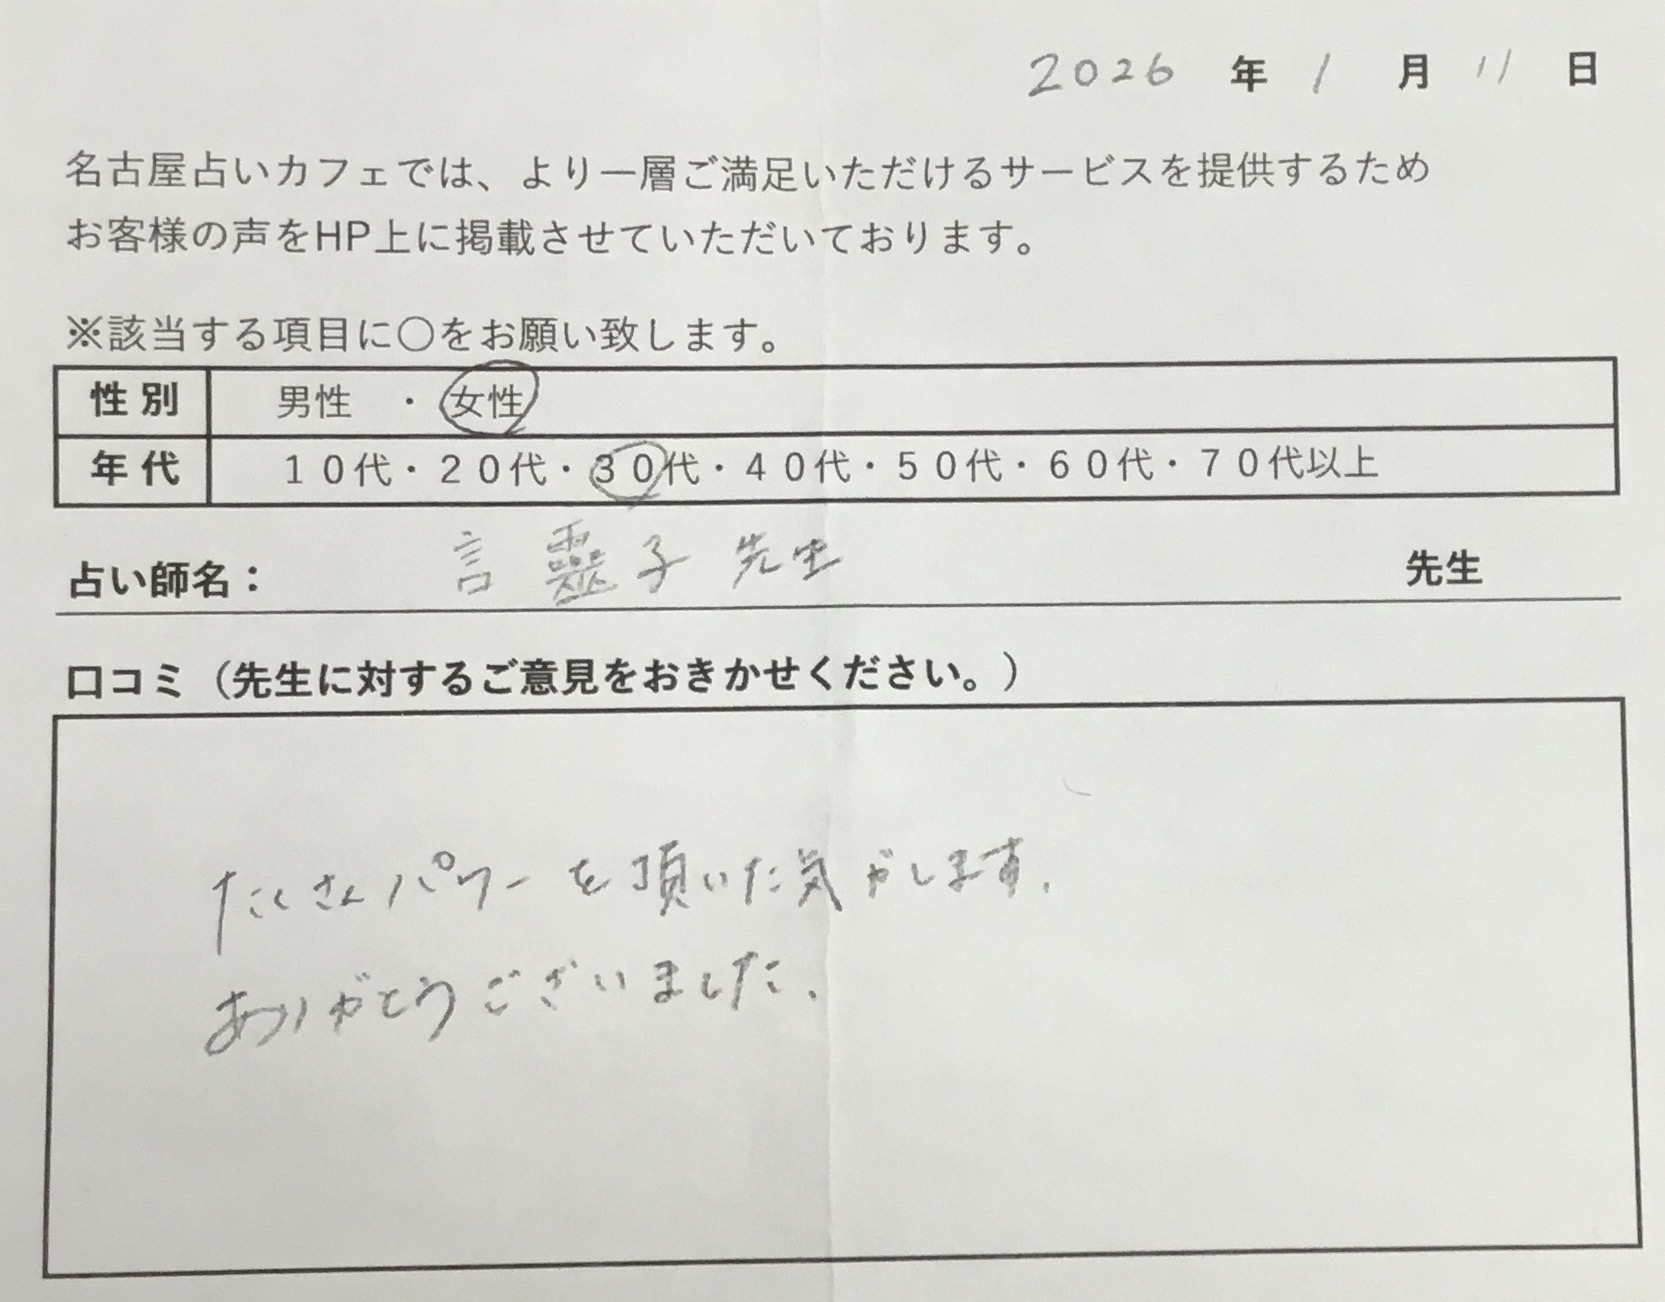 2026 年 1 月 11 日
名古屋占いカフェでは、より一層ご満足いただけるサービスを提供するため
お客様の声をHP上に掲載させていただいております。
※該当する項目に〇をお願い致します。
性別 男性 ・ 女性
年代 10代・20代・30代・40代・50代・60代・70代以上
占い師名： 言靈子先生 先生
口コミ（先生に対するご意見をおきかせください。）
たくさんパワーを頂いた気がします.
ありがとうございました.